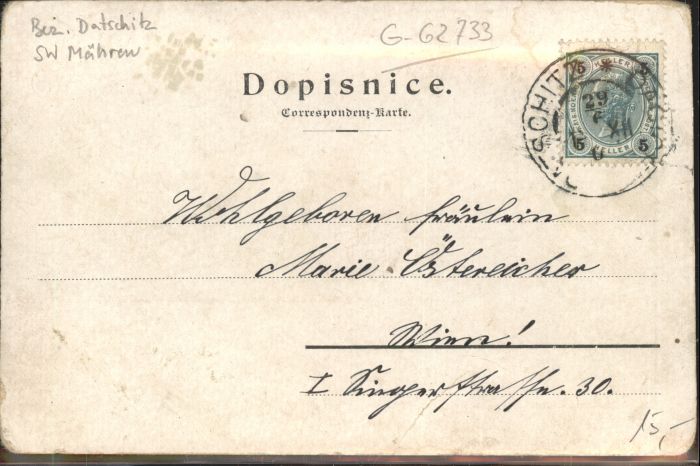 Bez. Datschitz
SW Mähren
G-62733
Dopisnice.
Correspondenz-Karte.
5 5
HELLER
5 5
HELLER
29
XII
Wohlgeboren Fräulein
Marie Östereicher
Wien!
I Singerstrasse. 30.
15,-